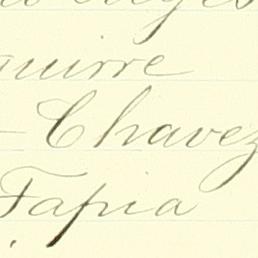 guirre
- Chavez
Tapia